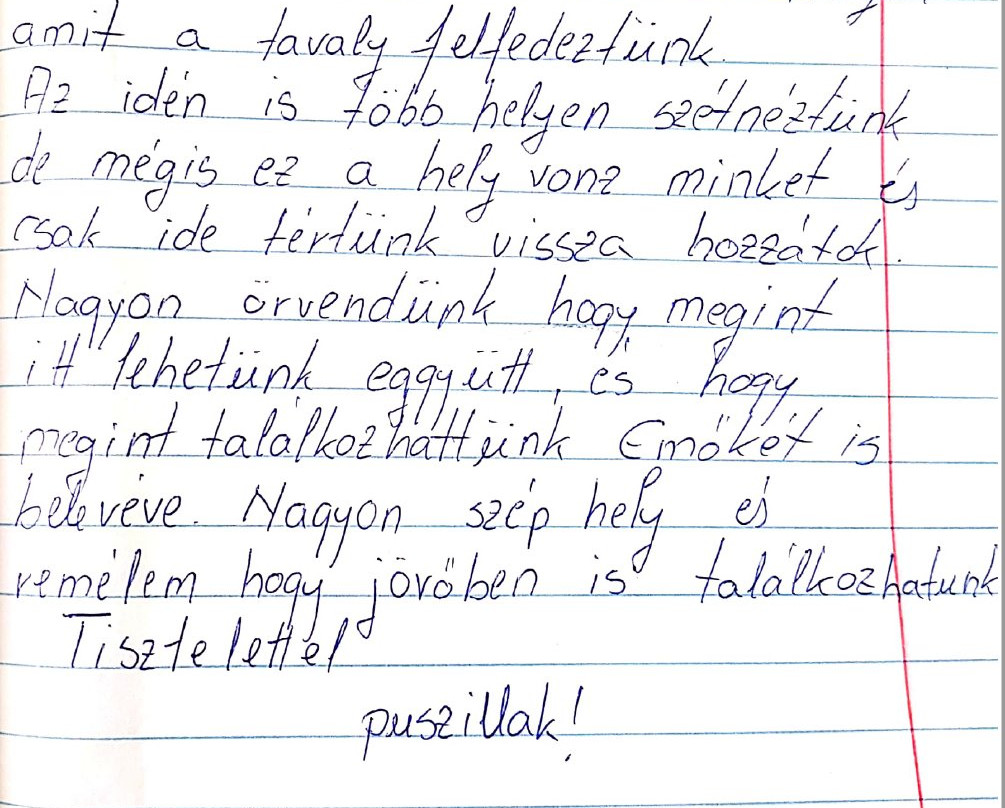 amit a tavaly felfedeztünk.
Az idén is több helyen szétnéztünk
de mégis ez a hely vonz minket és
csak ide tértünk vissza hozzátok.
Nagyon örvendünk hogy megint
itt lehetünk eggyütt, és hogy
megint találkozhattünk Emőkét is
beleveve. Nagyon szép hely és
remélem hogy jövőben is találkozhatunk
Tisztelettel
puszillak!